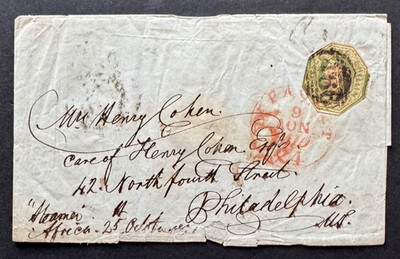 Mrs. Henry Cohen.
care of Henry Cohen Esqr
42. North fourth Street.
Philadelphia.
"Steamer"
Africa. 25 October